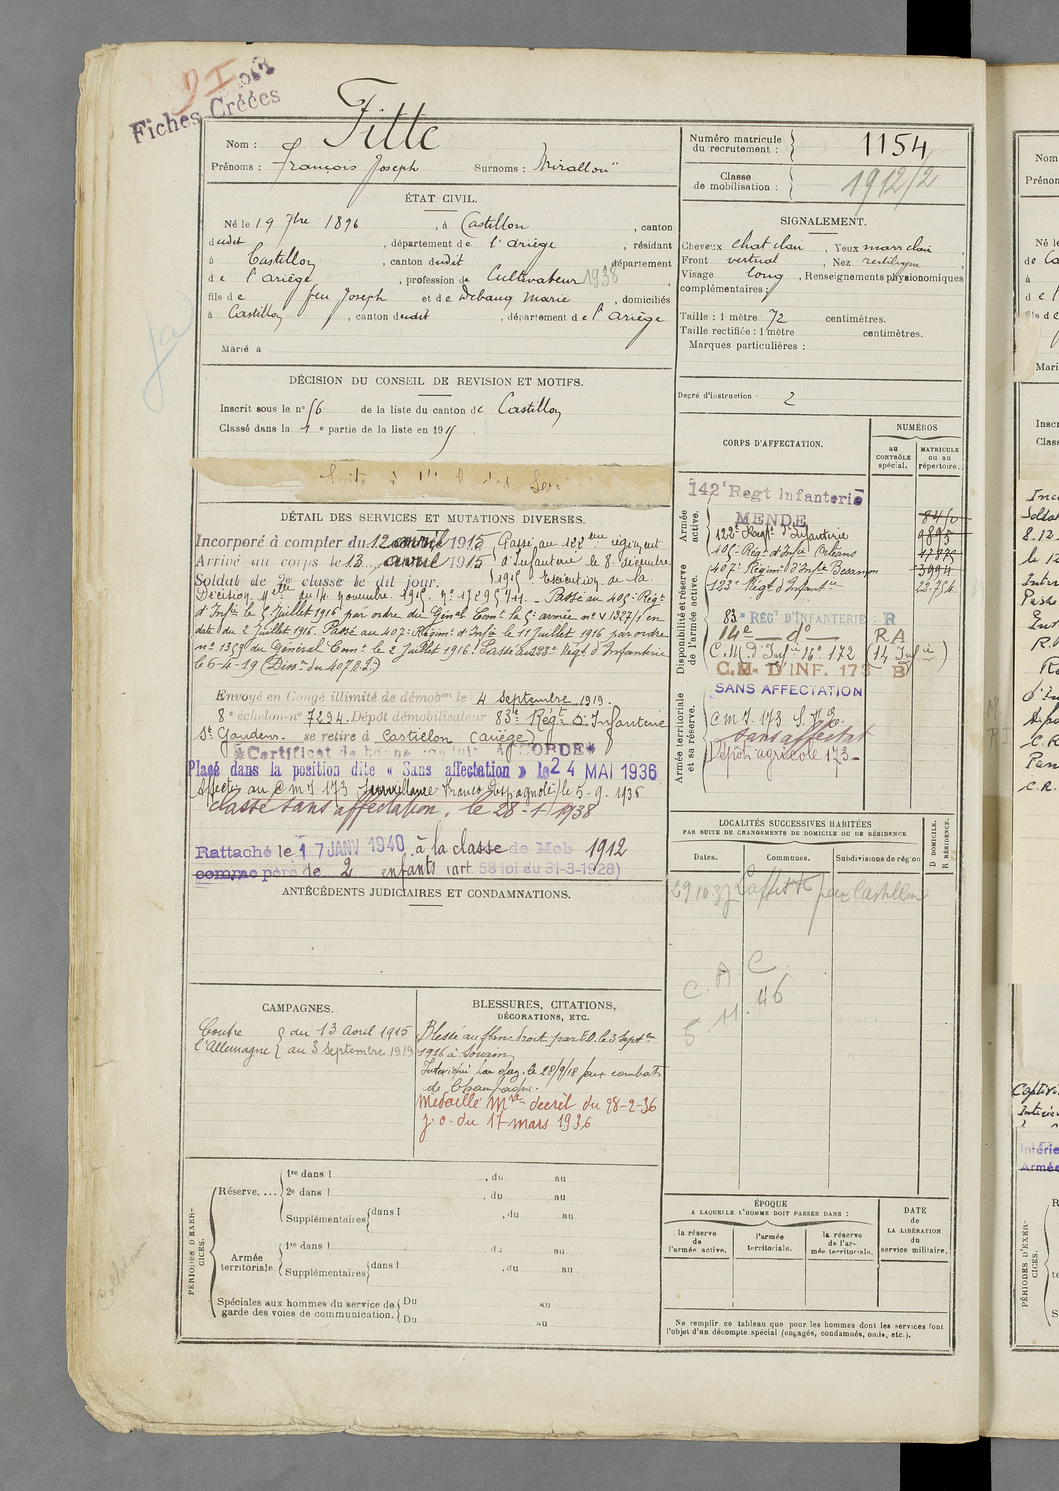 Fiches Créées
Fitte
Nom :
Prénoms : François Joseph Surnoms : "Mirallou"
Numéro matricule du recrutement : 1154
Classe de mobilisation : 1912/2
ÉTAT CIVIL.
Né le 19 7bre 1896, à Castillon, canton
dudit, département de l'Ariège, résidant
à Castillon, canton dudit département
de l'Ariège, profession de Cultivateur 1938
fils de feu Joseph et de Debauq Marie, domiciliés
à Castillon, canton dudit, département de l'Ariège
Marié à
SIGNALEMENT.
Cheveux chat clair, Yeux marr clair,
Front vertical, Nez rectiligne,
Visage long, Renseignements physionomiques
complémentaires :
Taille : 1 mètre 72 centimètres.
Taille rectifiée : 1 mètre centimètres.
Marques particulières :
Degré d'instruction : 2
DÉCISION DU CONSEIL DE REVISION ET MOTIFS.
Inscrit sous le n° 56 de la liste du canton de Castillon
Classé dans la 1e partie de la liste en 1915
DÉTAIL DES SERVICES ET MUTATIONS DIVERSES.
Incorporé à compter du 12 avril 1915 Passé au 122eme régiment
Arrivé au corps le 13 avril 1915 d'Infanterie le 8 décembre
Soldat de 2e classe le dit jour. 1915 Exécution de la
Décision Melle du 14 novembre 1915 n° 17295 1/11 - Passé au 405e Régt
d'Infie le 5 Juillet 1916 par ordre du Génal Comt la 5e armée n° 1327/1 en
date du 2 Juillet 1916. Passé au 407e Régim. d'Infie le 11 Juillet 1916 par ordre
n° 1359 du Général Comt le 2 Juillet 1916. Passé au 123e Régt d'Infanterie
le 6-4-19 (Dion du 407 R.I.)
Envoyé en Congé illimité de démobon le 4 septembre 1919.
8e échelon n° 7294. Dépôt démobilisateur 83e Régt d'Infanterie
St Gaudens. se retire à Castillon (Ariège)
*Certificat de bonne conduite ACCORDÉ*
Placé dans la position dite « Sans affectation » le 24 MAI 1936
Affecté au C M I. 173 Surveillance Franco Espagnole le 5-9-1936
classé sans affectation, le 28-1-1938
Rattaché le 17 JANV 1940 à la classe de Mob 1912
comme père de 2 enfants (art. 58 loi du 31-3-1928)
CORPS D'AFFECTATION.
NUMÉROS
AU CONTRÔLE spécial.
MATRICULE ou au répertoire.
Armée active.
142e Regt Infanterie
MENDE
122e Régt d'Infanterie 9895
405e Régt d'Infie Orléans
407e Régim. d'Infie Besançon 3994
123e Régt d'Infantie 22754
Disponibilité et réserve de l'armée active.
83e RÉGT D'INFANTERIE : R
14e — do — RA
C.M. D'INF. 173 B
SANS AFFECTATION
Armée territoriale et sa réserve.
C m I. 173
Sans affectat
Dépôt agricole 173
LOCALITÉS SUCCESSIVES HABITÉES
PAR SUITE DE CHANGEMENTS DE DOMICILE OU DE RÉSIDENCE
Dates. Communes. Subdivisions de région D DOMICILE. R RÉSIDENCE.
29.10.37 par Castillon
C. A C.
5 M. 46
ANTÉCÉDENTS JUDICIAIRES ET CONDAMNATIONS.
CAMPAGNES.
Contre l'Allemagne { du 13 Avril 1915
au 3 Septembre 1919
BLESSURES, CITATIONS, DÉCORATIONS, ETC.
Blessé au flanc droit par E.O. le 3 septbre
1916 à Souain
Intoxiqué par gaz le 28/9/18 aux combats
de Champagne.
Médaille Mre décret du 28-2-36
J. O. du 17 mars 1936
PÉRIODES D'EXERCICES.
Réserve....
1re dans l , du au
2e dans l , du au
Supplémentaires dans l , du au
Armée territoriale.
1re dans l , du au
Supplémentaires dans l , du au
Spéciales aux hommes du service de garde des voies de communication.
Du au
Du au
ÉPOQUE
A LAQUELLE L'HOMME DOIT PASSER DANS :
la réserve de l'armée active.
l'armée territoriale.
la réserve de l'armée territoriale.
DATE DE LA LIBÉRATION du service militaire.
Ne remplir ce tableau que pour les hommes dont les services font
l'objet d'un décompte spécial (engagés, condamnés, omis, etc.).